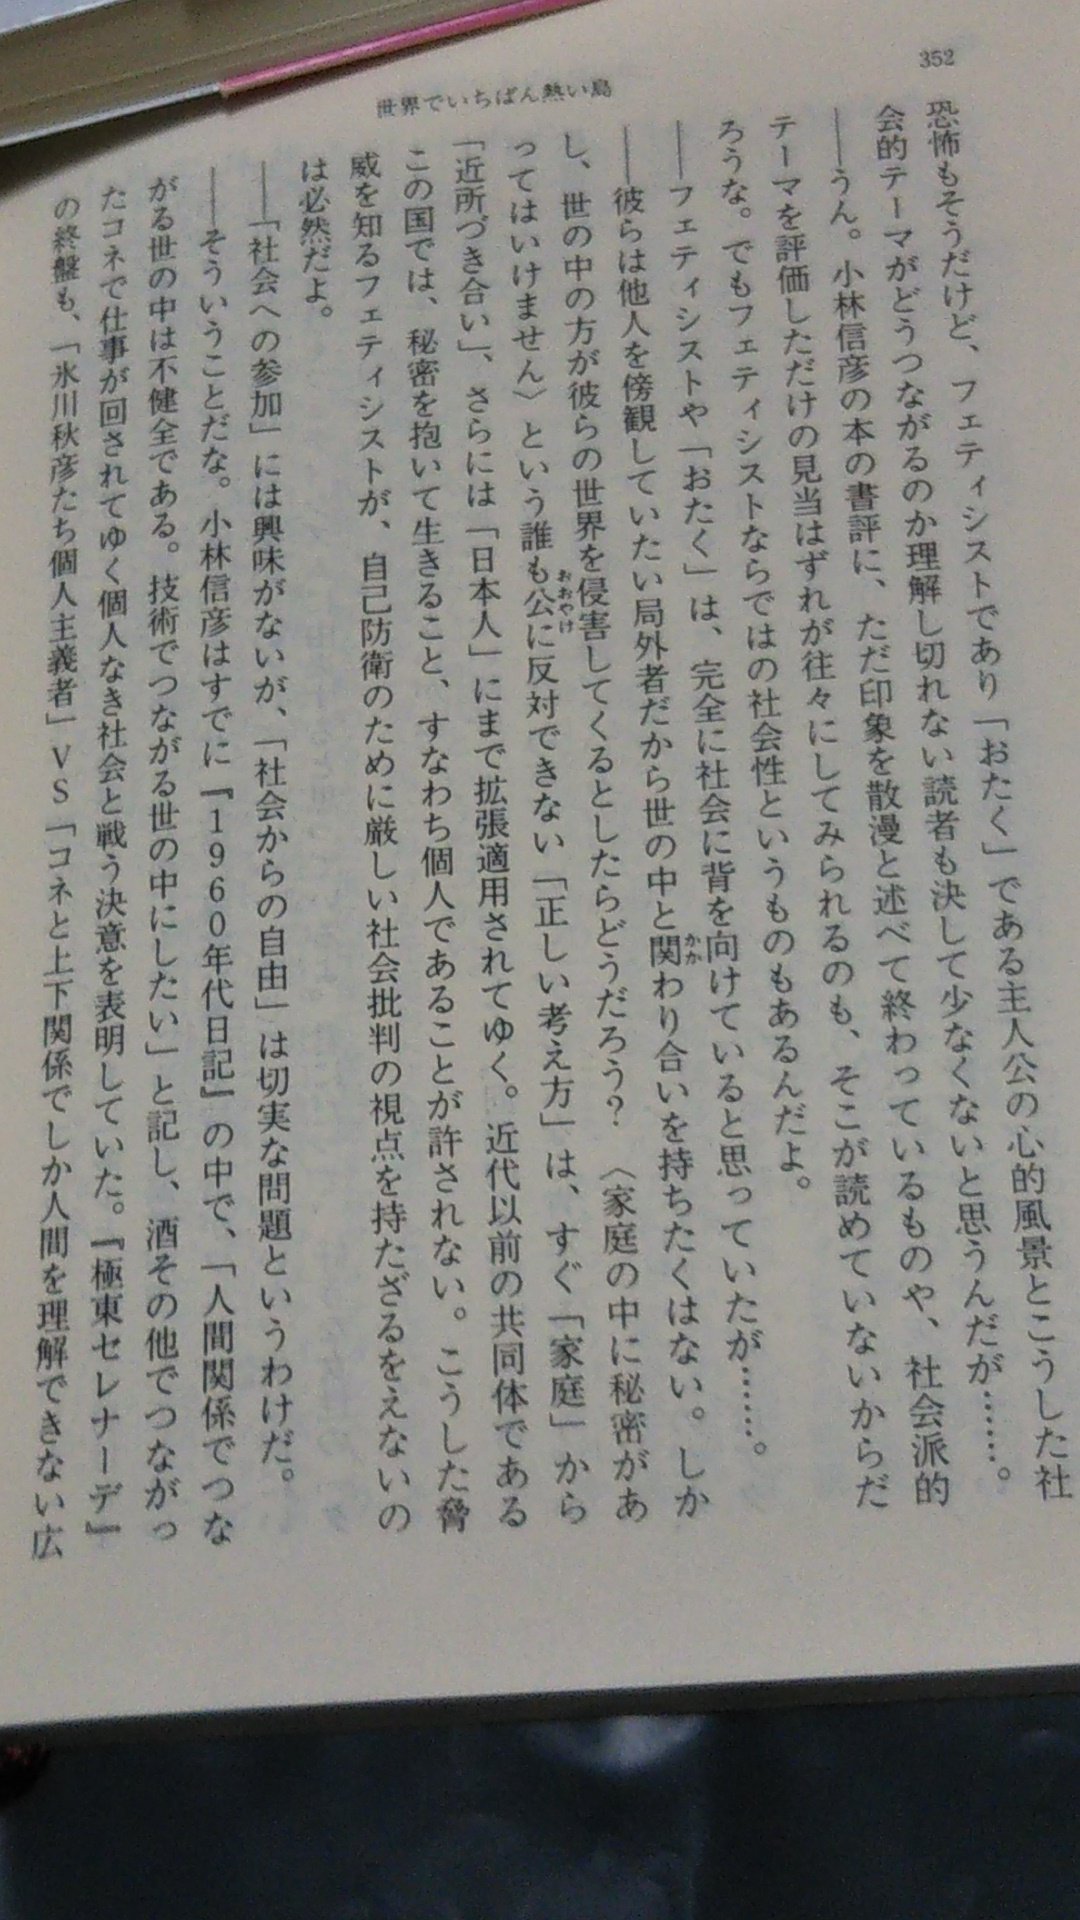 352
世界でいちばん熱い島
恐怖もそうだけど、フェティシストであり「おたく」である主人公の心的風景とこうした社
会的テーマがどうつながるのか理解し切れない読者も決して少なくないと思うんだが……。
――うん。小林信彦の本の書評に、ただ印象を散漫と述べて終わっているものや、社会派的
テーマを評価しただけの見当はずれが往々にしてみられるのも、そこが読めていないからだ
ろうな。でもフェティシストならではの社会性というものもあるんだよ。
――フェティシストや「おたく」は、完全に社会に背を向けていると思っていたが……。
――彼らは他人を傍観していたい局外者だから世の中と関わり合いを持ちたくはない。しか
し、世の中の方が彼らの世界を侵害してくるとしたらどうだろう？　〈家庭の中に秘密があ
ってはいけません〉という誰も公に反対できない「正しい考え方」は、すぐ「家庭」から
「近所づき合い」、さらには「日本人」にまで拡張適用されてゆく。近代以前の共同体である
この国では、秘密を抱いて生きること、すなわち個人であることが許されない。こうした脅
威を知るフェティシストが、自己防衛のために厳しい社会批判の視点を持たざるをえないの
は必然だよ。
――「社会への参加」には興味がないが、「社会からの自由」は切実な問題というわけだ。
――そういうことだな。小林信彦はすでに『１９６０年代日記』の中で、「人間関係でつな
がる世の中は不健全である。技術でつながる世の中にしたい」と記し、酒その他でつながっ
たコネで仕事が回されてゆく個人なき社会と戦う決意を表明していた。『極東セレナーデ』
の終盤も、「氷川秋彦たち個人主義者」ＶＳ「コネと上下関係でしか人間を理解できない広